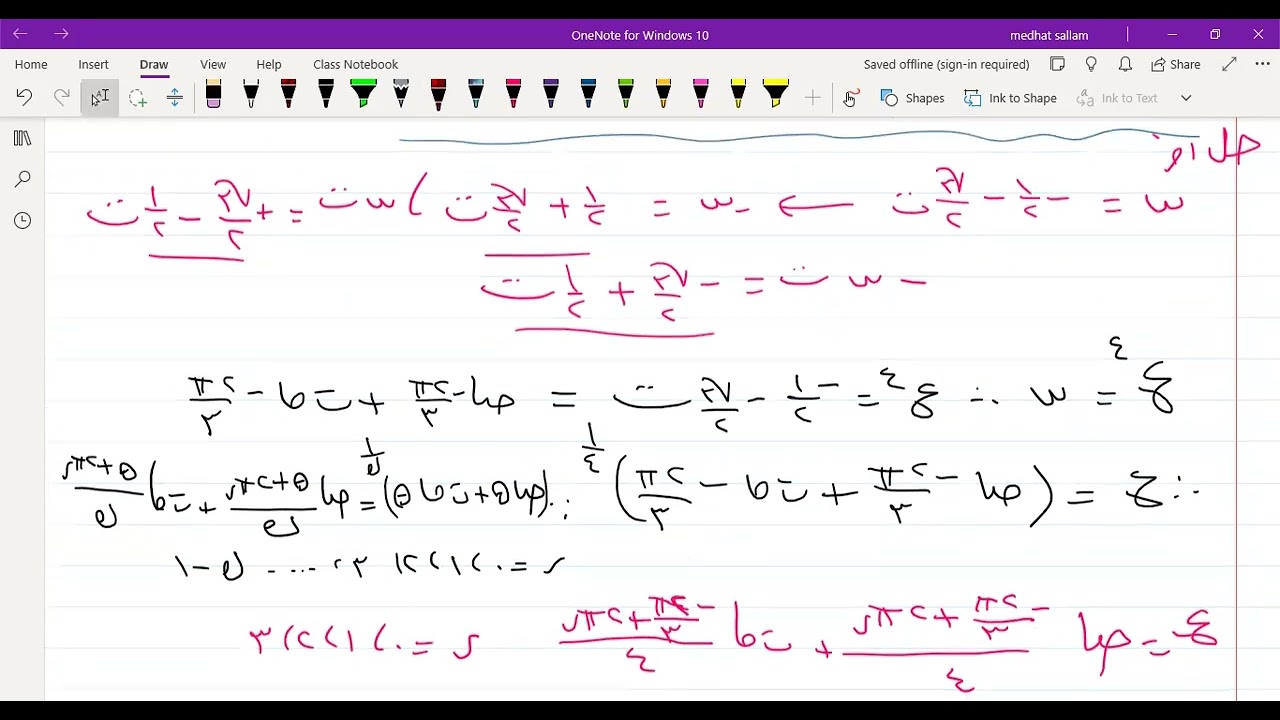 OneNote for Windows 10
medhat sallam
Home Insert Draw View Help Class Notebook
Saved offline (sign-in required) Share
Shapes Ink to Shape Ink to Text
حل آخر
س = -١/٢ - √٣/٢ ت ← -س = ١/٢ + √٣/٢ ت ، س ت = + √٣/٢ - ١/٢ ت
- س ت = - √٣/٢ + ١/٢ ت
ع^٤ = س ∴ ع^٤ = -١/٢ - √٣/٢ ت = جتا -٢π/٣ + ت جا -٢π/٣
∴ ع = (جتا -٢π/٣ + ت جا -٢π/٣)^١/٤ ∴ (جتا θ + ت جا θ)^١/ن = جتا (θ+٢πر)/ن + ت جا (θ+٢πر)/ن
ر = ٠ ، ١ ، ٢ ، ٣ ، .... ن - ١
ع = جتا (-٢π/٣ + ٢πر)/٤ + ت جا (-٢π/٣ + ٢πر)/٤ ر = ٠ ، ١ ، ٢ ، ٣